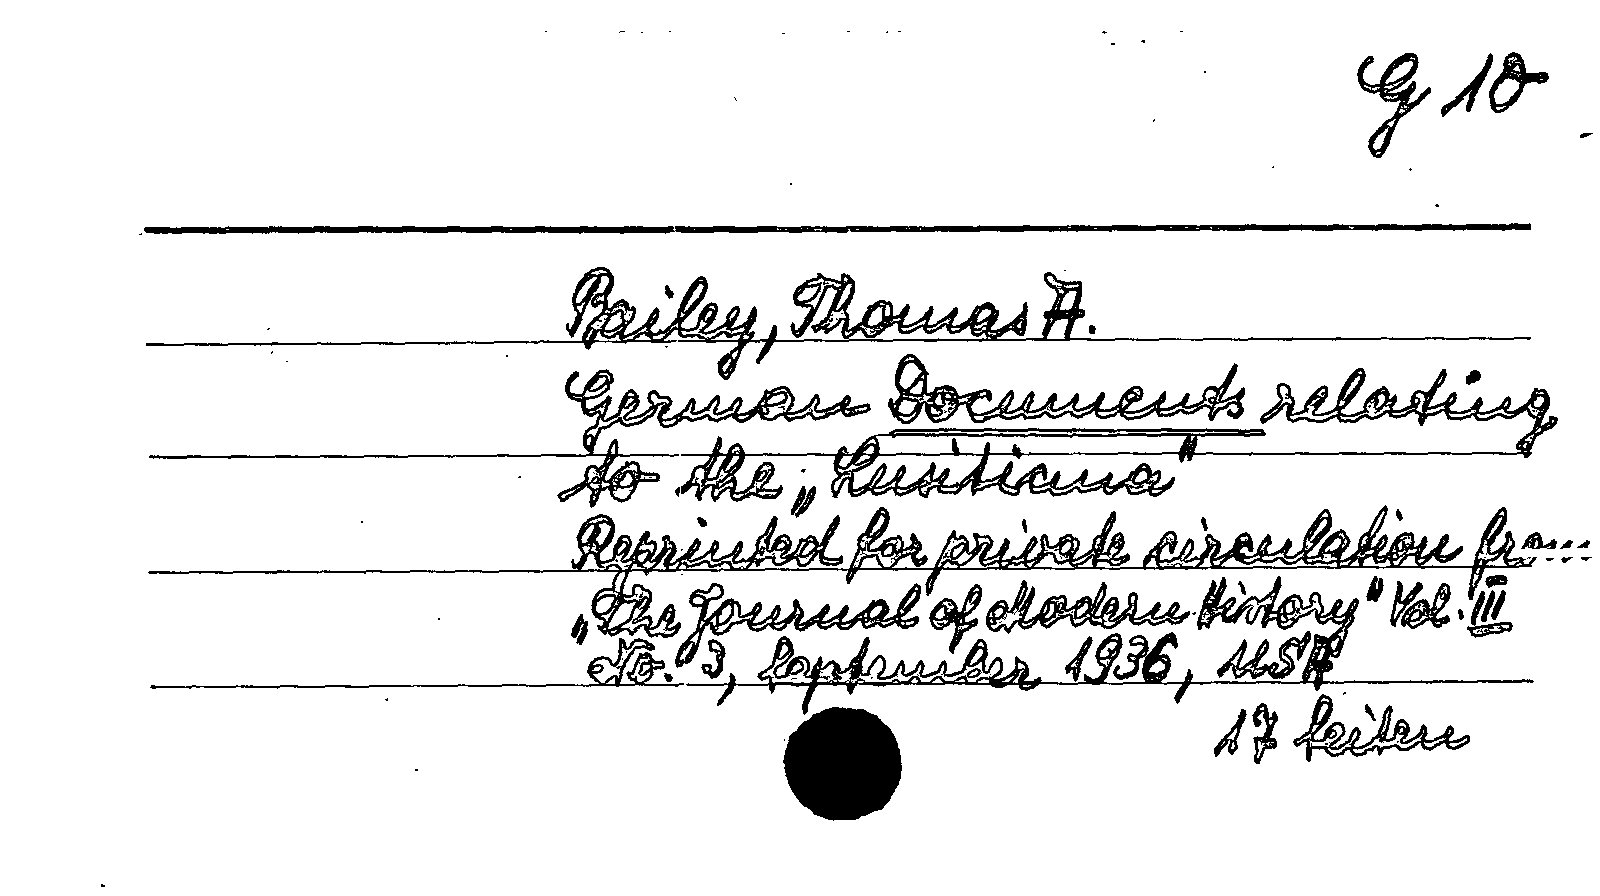 G 10
Bailey, Thomas A.
German Documents relating
to the „Lusitiana"
Reprinted for private circulation from
„The Journal of Modern History" Vol. III
No. 3, September 1936, USA
17 Seiten